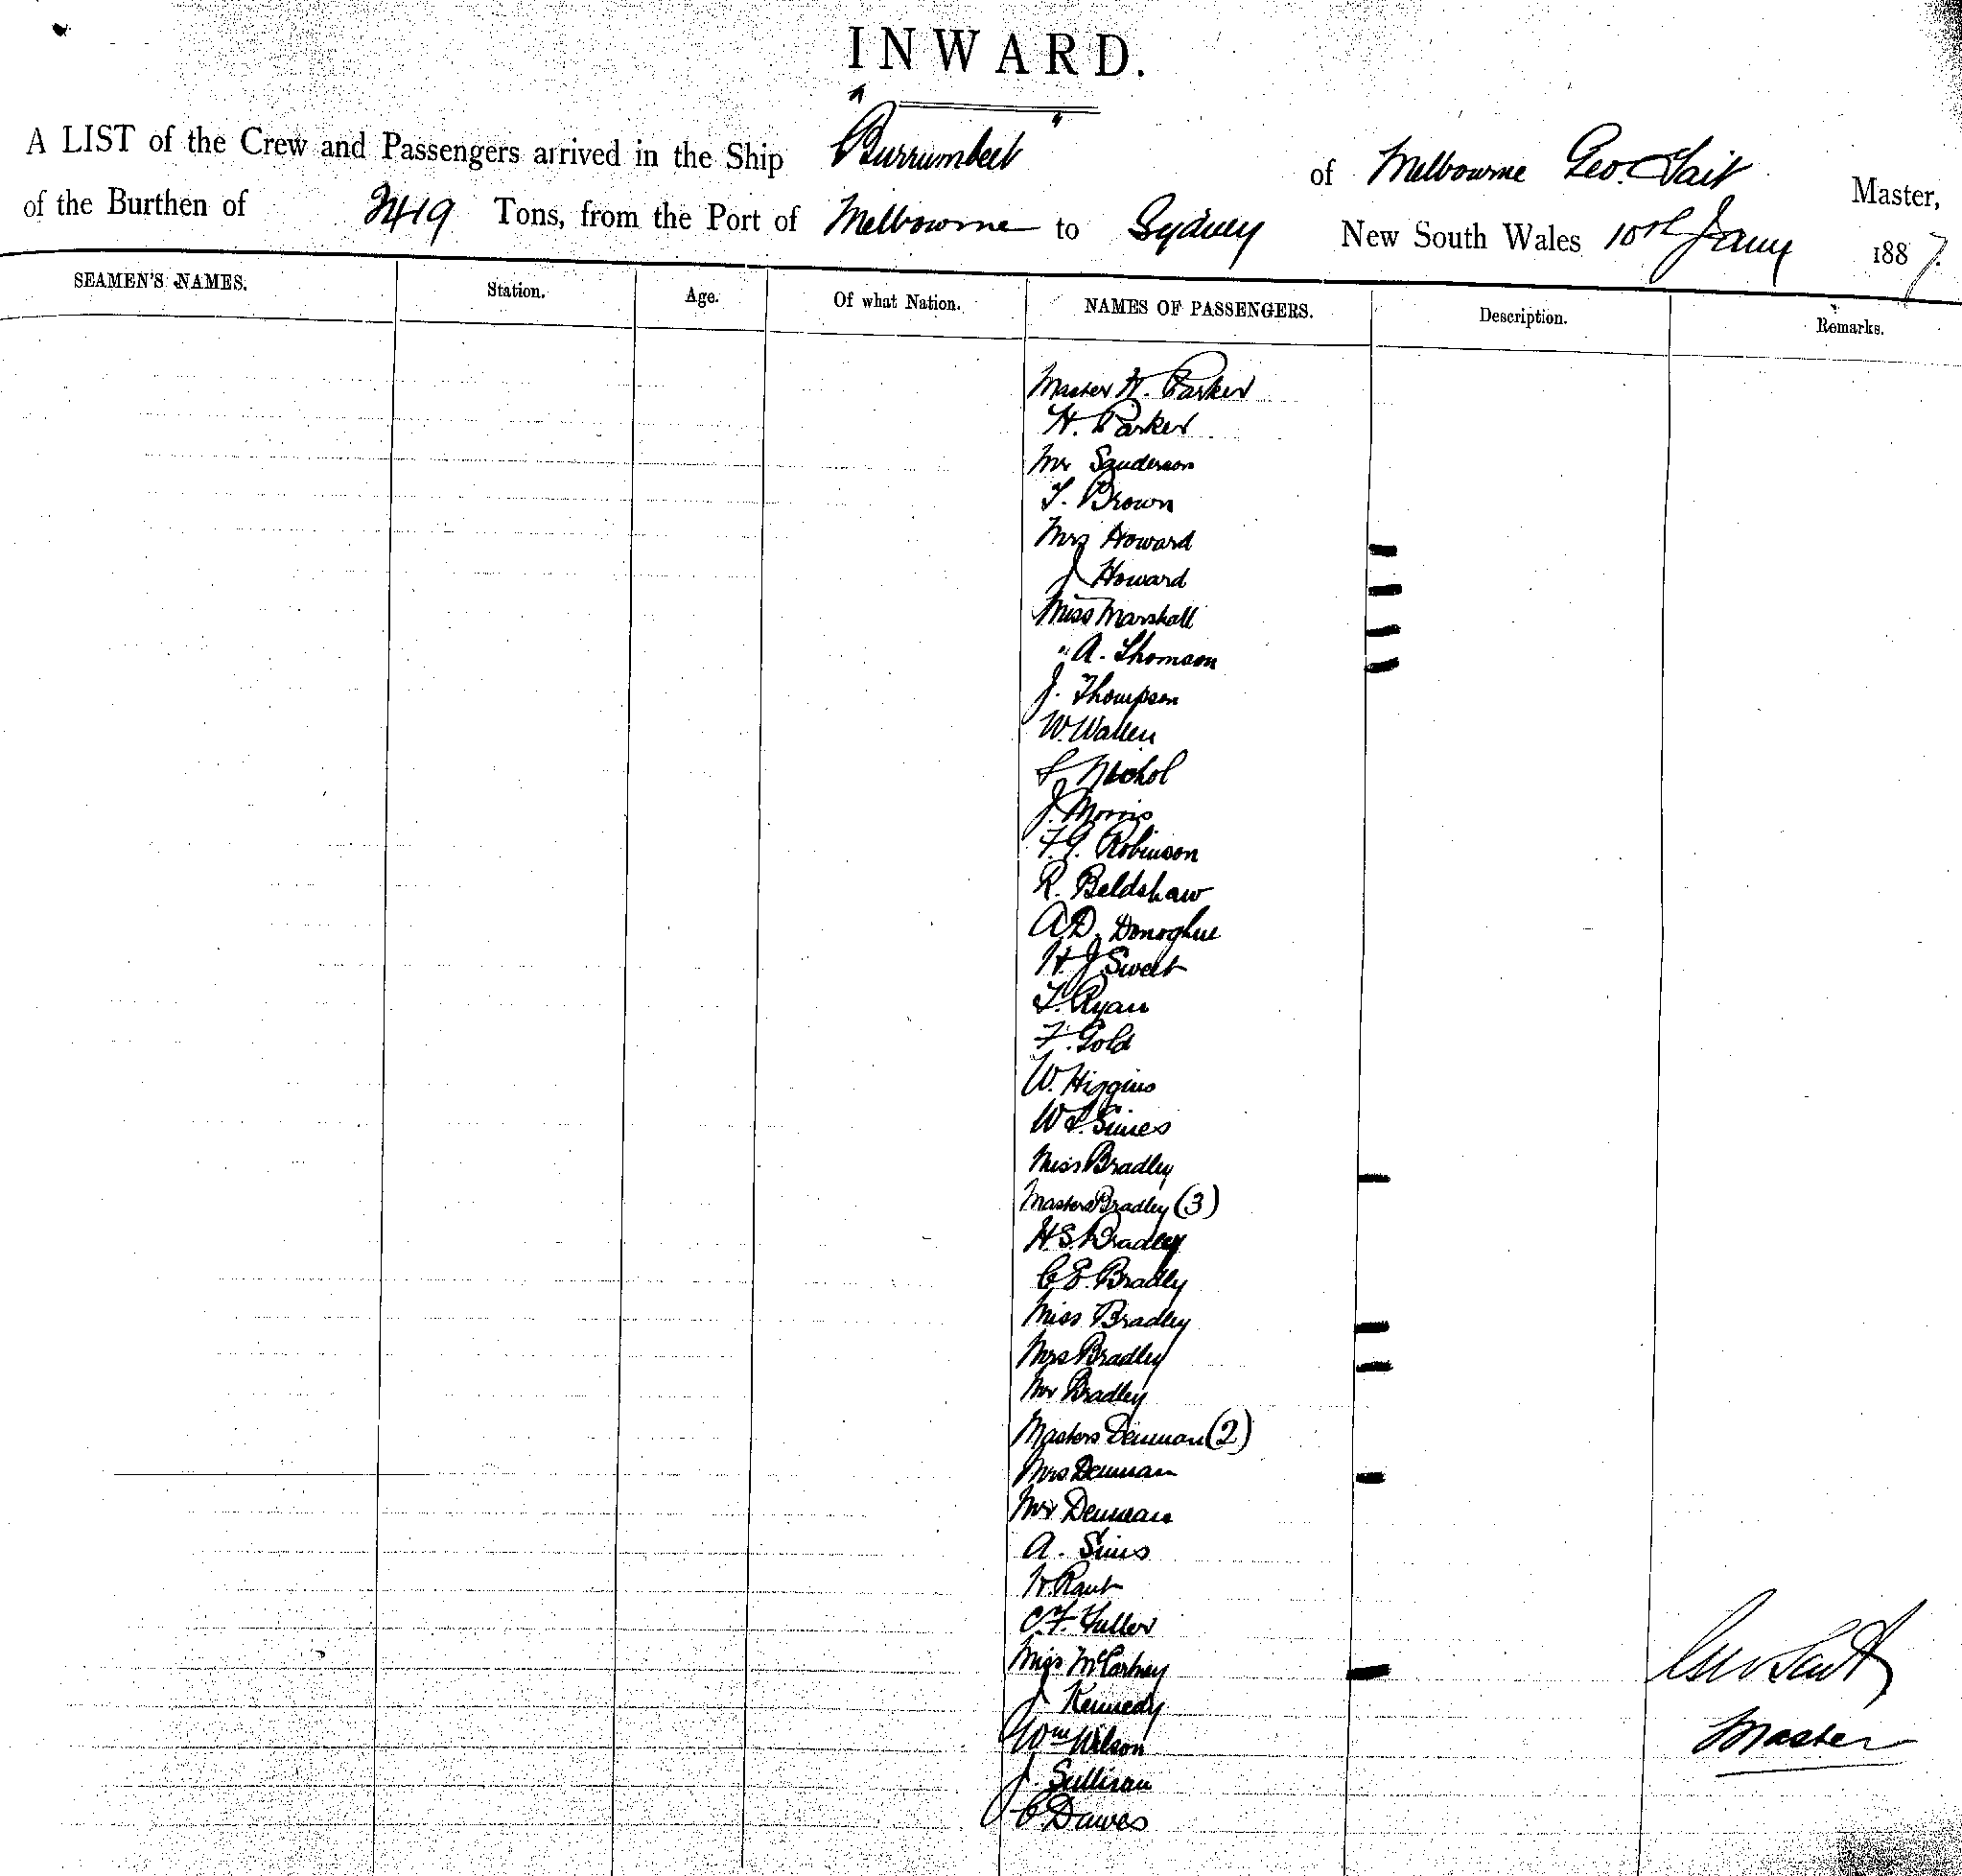 INWARD.
A LIST of the Crew and Passengers arrived in the Ship "Burrumbeet" of Melbourne Geo. Tait Master,
of the Burthen of 2419 Tons, from the Port of Melbourne to Sydney New South Wales 10th Jany 1887.
SEAMEN'S NAMES. Station. Age. Of what Nation. NAMES OF PASSENGERS. Description. Remarks.
Master W. Parker
H. Parker
Mr Sanderson
T. Brown
Mrs Howard
J Howard
Miss Marshall
" A. Thomson
J. Thompson
W. Wallen
Nichol
J. Morris
F.G. Robinson
R. Beldshaw
A.D. Donoghue
H. J Sweet
T. Ryan
F. Gold
W. Higgins
W S. Simes
Miss Bradley
Masters Bradley (3)
H.S. Bradley
C E. Bradley
Miss Bradley
Mrs Bradley
Mr Bradley
Masters Denman (2)
Mrs Denman
Mr Denman
A. Sims
C.F. Fuller
Miss McCartney
J Kennedy
Wm Wilson
J. Sullivan
C Dawes
Geo Tait
Master